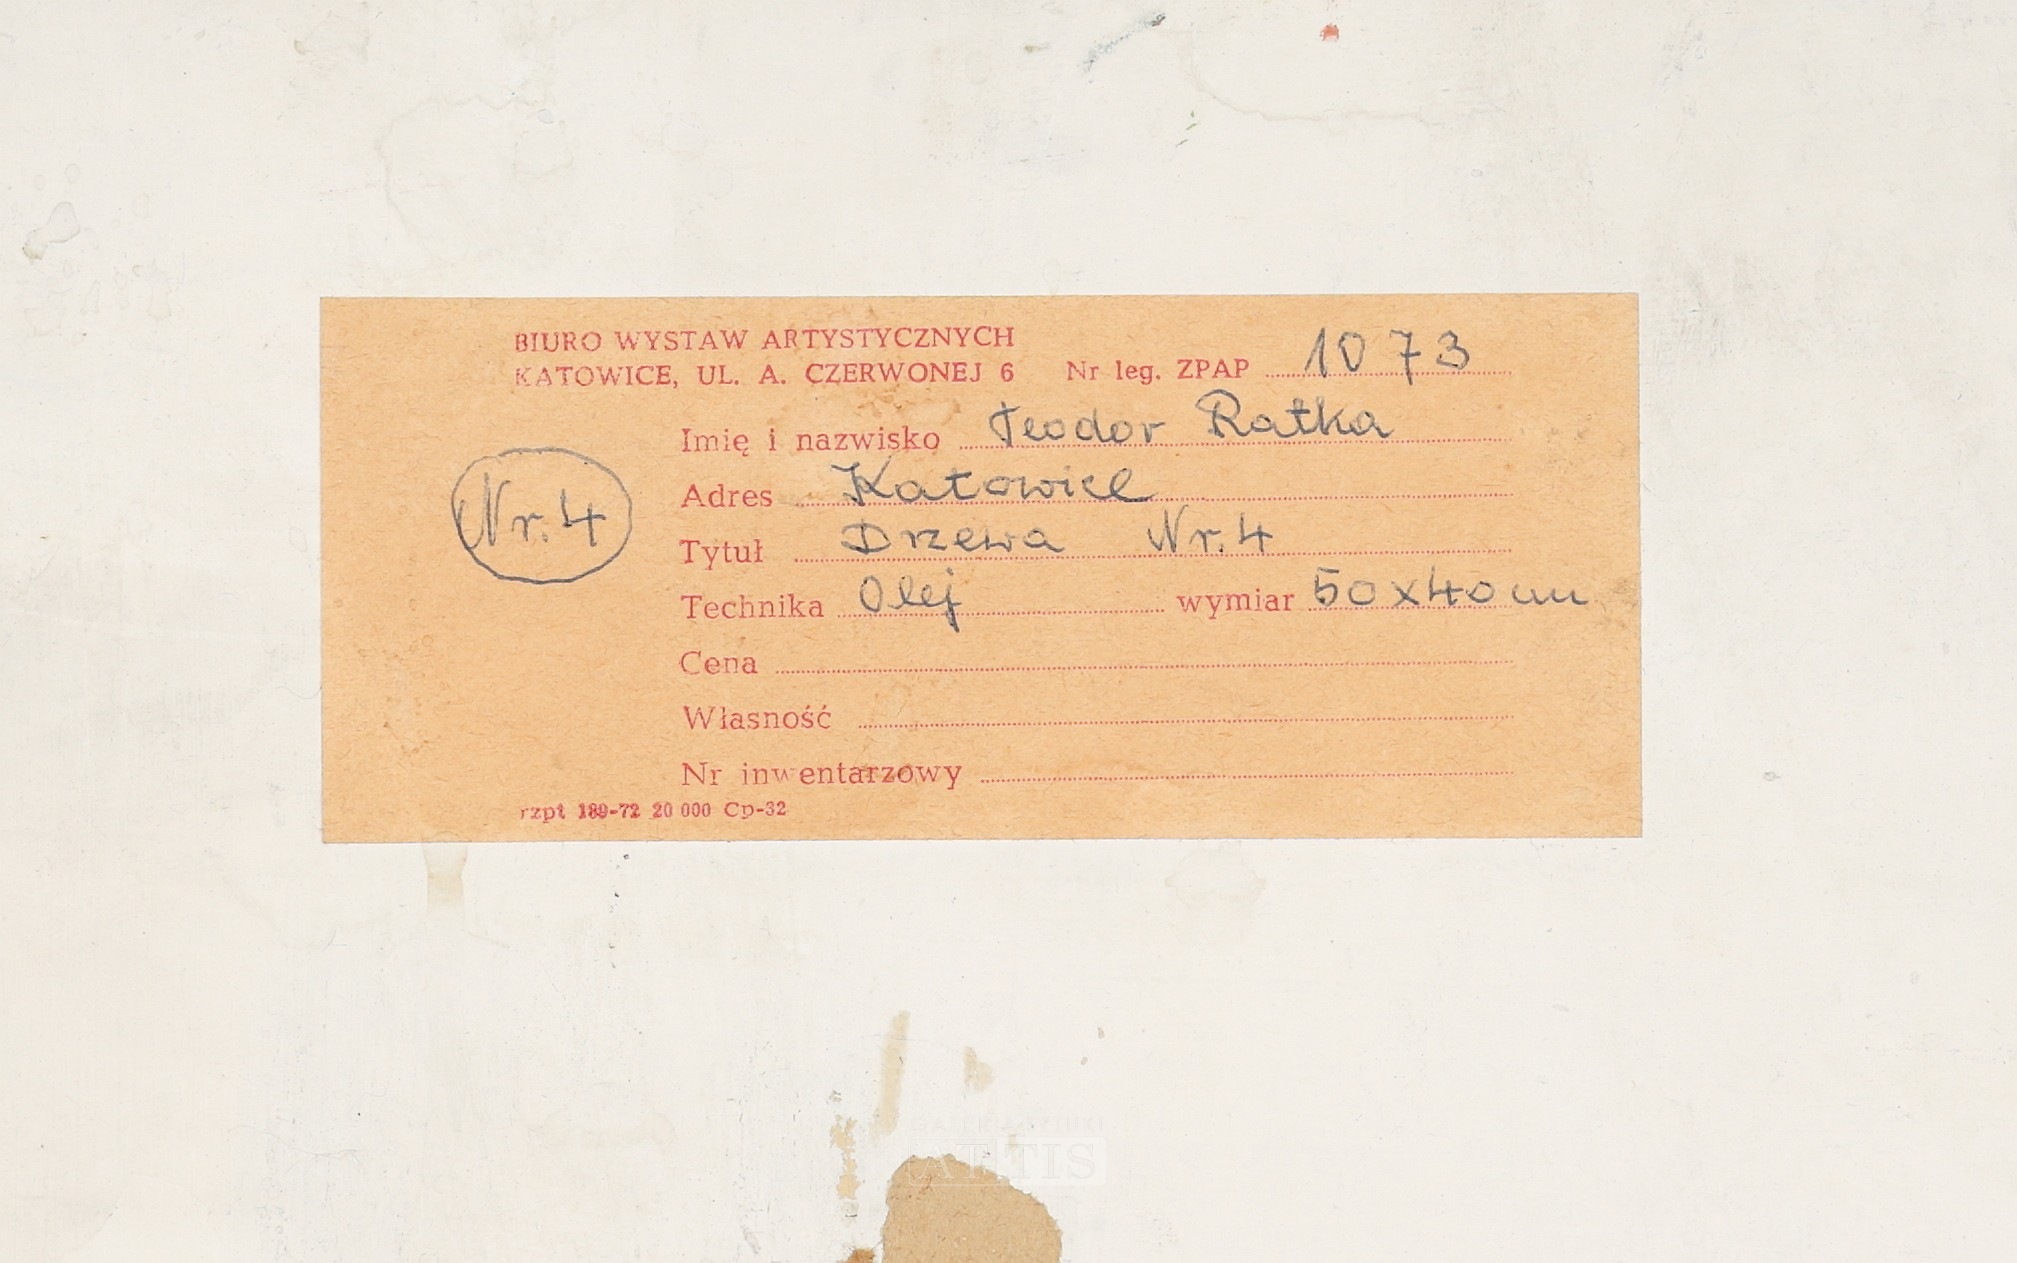 BIURO WYSTAW ARTYSTYCZNYCH
KATOWICE, UL. A. CZERWONEJ 6 Nr leg. ZPAP 1073
Imię i nazwisko Teodor Ratka
Adres Katowice
Nr. 4
Tytuł Drzewa Nr. 4
Technika Olej wymiar 50x40cm
Cena
Własność
Nr inwentarzowy
rzpt 189-72 20 000 Cp-32
GALERIA SZTUKI
ATTIS